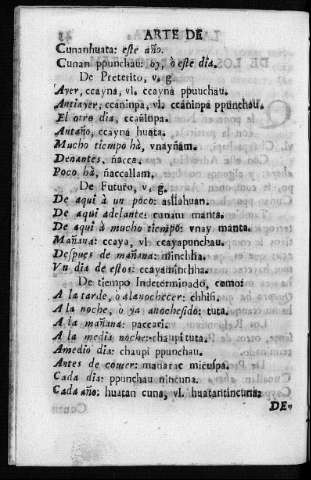 ARTE DE
Cunanhuata: este año.
Cunan ppunchau: oy, ò este dia.
De Preterito, v, g.
Ayer, ccayna, vl. ccaynà ppuuchau.
Antiayer, ccaninpa, vl. ccaninpa ppunchau.
El otro dia, ccañinpa.
Antaño, ccayna huata.
Mucho tiempo hà, vnayñam.
Denantes, ñacca.
Poco hà, ñaccallam.
De Futuro, v, g.
De aqui à un poco: asllahuan.
De aqui adelante: cunam manta.
De aquì à mucho tiempo: vnay manta.
Mañana: ccaya, vl. ccayapunchau.
Despues de mañana: minchha.
Vn dia de estos: ccayaminchha.
De tiempo Indeterminado, como:
A la tarde, o alanochecer: chhisi.
A la noche, ò ya anochesido: tuta.
A la mañana: paccari.
A la media noche: chaupi tuta.
Amedio dia: chaupi ppunchau.
Antes de comer: manarac micuspa.
Cada dia: ppunchau nincuna.
Cada año: huatan cuna, vl. huatantincuna.
DE-